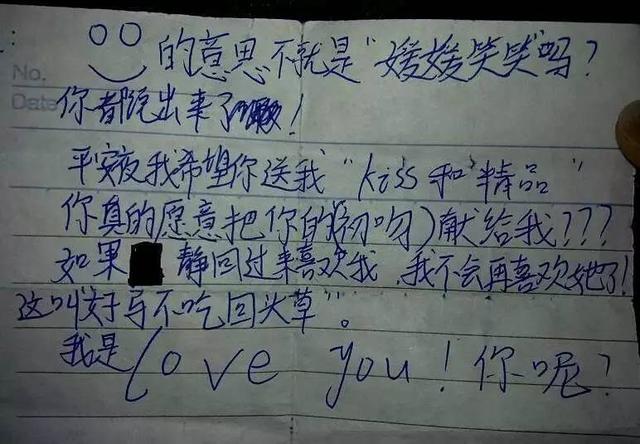 No.
Date
的意思不就是“媛媛笑笑”吗?
你都说出来了!
平安夜我希望你送我“kiss和精品”
你真的愿意把你的(初吻)献给我???
如果 静回过来喜欢我,我不会再喜欢她了!
这叫“好马不吃回头草”。
我是love you!你呢?